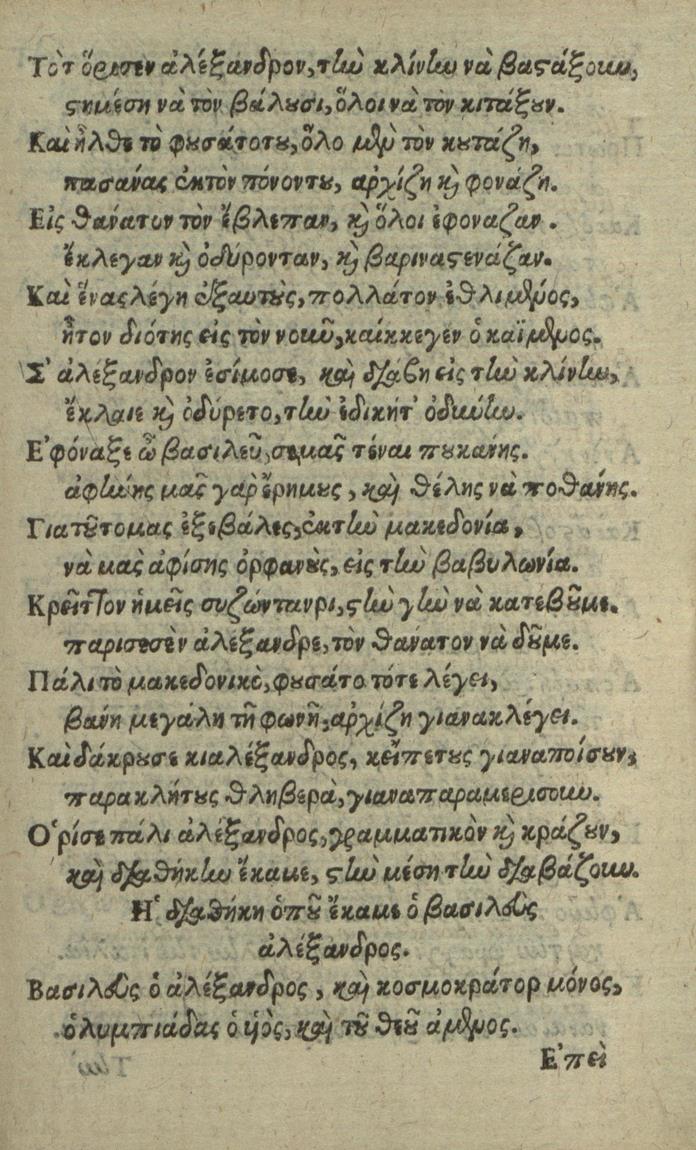 Τὸτ ὅρισεν ἀλέξανδρον, τὴν κλίνην νὰ βαστάξουν,
στημέση νὰ τὸν βάλουσι, ὅλοι νὰ τὸν κιτάξουν.
Καὶ ἦλθε τὸ φουσάτοτου, ὅλο μὲν τὸν κυτάζη,
πασανάς ἐκτὸν πόνοντου, ἀρχίζη καὶ φονάζη.
Εἰς θανάτυν τὸν ἔβλεπαν, καὶ ὅλοι ἐφοναζαν.
ἔκλεγαν καὶ ὀδύρονταν, καὶ βαριναστενάζαν.
Καὶ ἕνας λέγη ἐξαυτοὺς, πολλάτον ἐθλιμένος,
ἦτον διότης εἰς τὸν νοῦν, καίκκεγεν ὁ καϊμένος.
Σ' ἀλέξανδρον ἐσίμοσε, καὶ διάβη εἰς τὴν κλίνην,
ἔκλαιε καὶ ὀδύρετο, τὴν ἐδικήτ' ὀδυνην.
Ἐφόναξε ὦ βασιλεῦ, σεμᾶς τέναι πουκανης.
ἀφίνης μᾶς γαρ ἔρημους, καὶ θέλης νὰ ποθάνης.
Γιατοῦτομας ἐξεβάλες, ἐκτὴν μακεδονία,
νὰ μας ἀφίσης ὀρφανοὺς, εἰς τὴν βαβυλωνία.
Κρεῖττον ἡμεῖς συζώντανρι, στὴν γὴν νὰ κατεβοῦμε.
παρισεσὲν ἀλέξανδρε, τὸν θανατον νὰ δοῦμε.
Πάλι τὸ μακεδονικὸ, φουσάτο τότε λέγει,
βανη μεγάλη τῆ φωνῆ, ἀρχίζη γιανακλέγει.
Καὶ δάκρυσε κιαλέξανδρος, κεἶπετους γιαναποίσουν,
παρακλήτους θλιβερὰ, γιαναπαραμερισουν.
Ὁρίσε πάλι ἀλέξανδρος, γραμματικὸν καὶ κράζουν,
καὶ διαθήκην ἔκαμε, στὴν μέση τὴν διαβάζουν.
Ἡ διαθήκη ὁποῦ ἔκαμε ὁ βασιλεὺς
ἀλέξανδρος.
Βασιλεὺς ὁ ἀλέξανδρος, καὶ κοσμοκράτορ μόνος,
ὀλυμπιάδας ὁ ὑὸς, καὶ τοῦ θεοῦ ἀμένος.
Ἐπεὶ